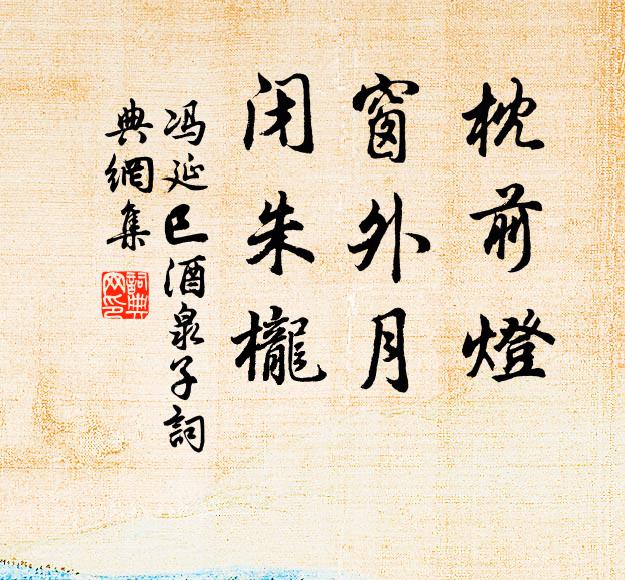 枕前燈
窗外月
闭朱櫳
冯延巳酒泉子詞
典網集
詞典
网印